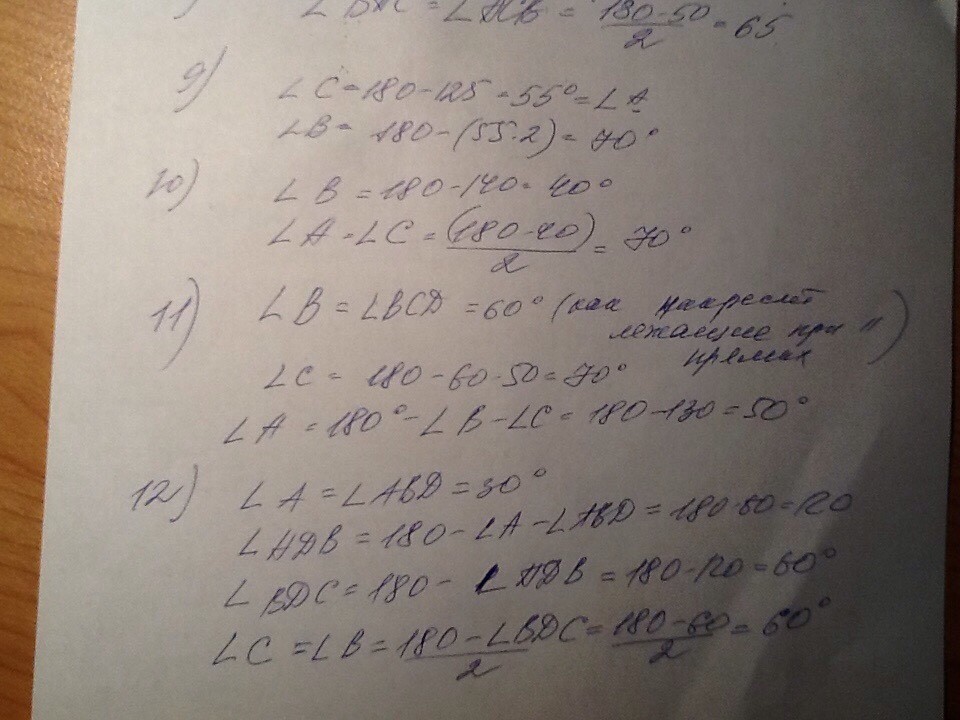 ∠BAC = ∠ACB = (180-50)/2 = 65
9) ∠C = 180-125 = 55° = ∠A
∠B = 180-(55·2) = 70°
10) ∠B = 180-140 = 40°
∠A = ∠C = (180-40)/2 = 70°
11) ∠B = ∠BCD = 60° (как накрест
лежащие при ||
прямых)
∠C = 180-60-50 = 70°
∠A = 180°-∠B-∠C = 180-130 = 50°
12) ∠A = ∠ABD = 30°
∠ADB = 180-∠A-∠ABD = 180-60 = 120
∠BDC = 180-∠ADB = 180-120 = 60°
∠C = ∠B = (180-∠BDC)/2 = (180-60)/2 = 60°